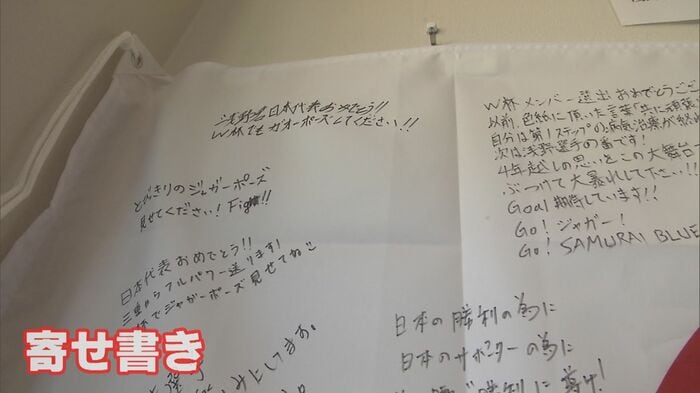 浅野君日本代表おめでとう!!
W杯でもガオーポーズしてください!!
とびきりのジャガーポーズ
見せてください! Fight!!
日本代表おめでとう!!
三重からフルパワー送ります!
でジャガーポーズ見せてね
みにしてます。
W杯メンバー選出おめでとうご
以前、色紙に頂いた言葉「共に頑張
自分は第1ステップの病気治療が終
次は浅野選手の番です!
4年越しの思いをこの大舞台で
ぶつけて大暴れして下さい!!
Goal期待しています!!
Go! ジャガー!
Go! SAMURAI BLUE
日本の勝利の為に
日本のサポーターの為に
勝利に導け!
寄せ書き